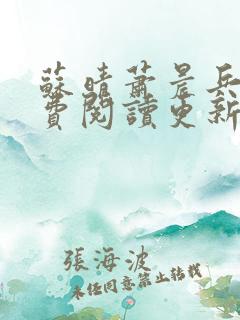 蘇晴蕭景兵
費閱讀更新
張海波
未經同意禁止轉載